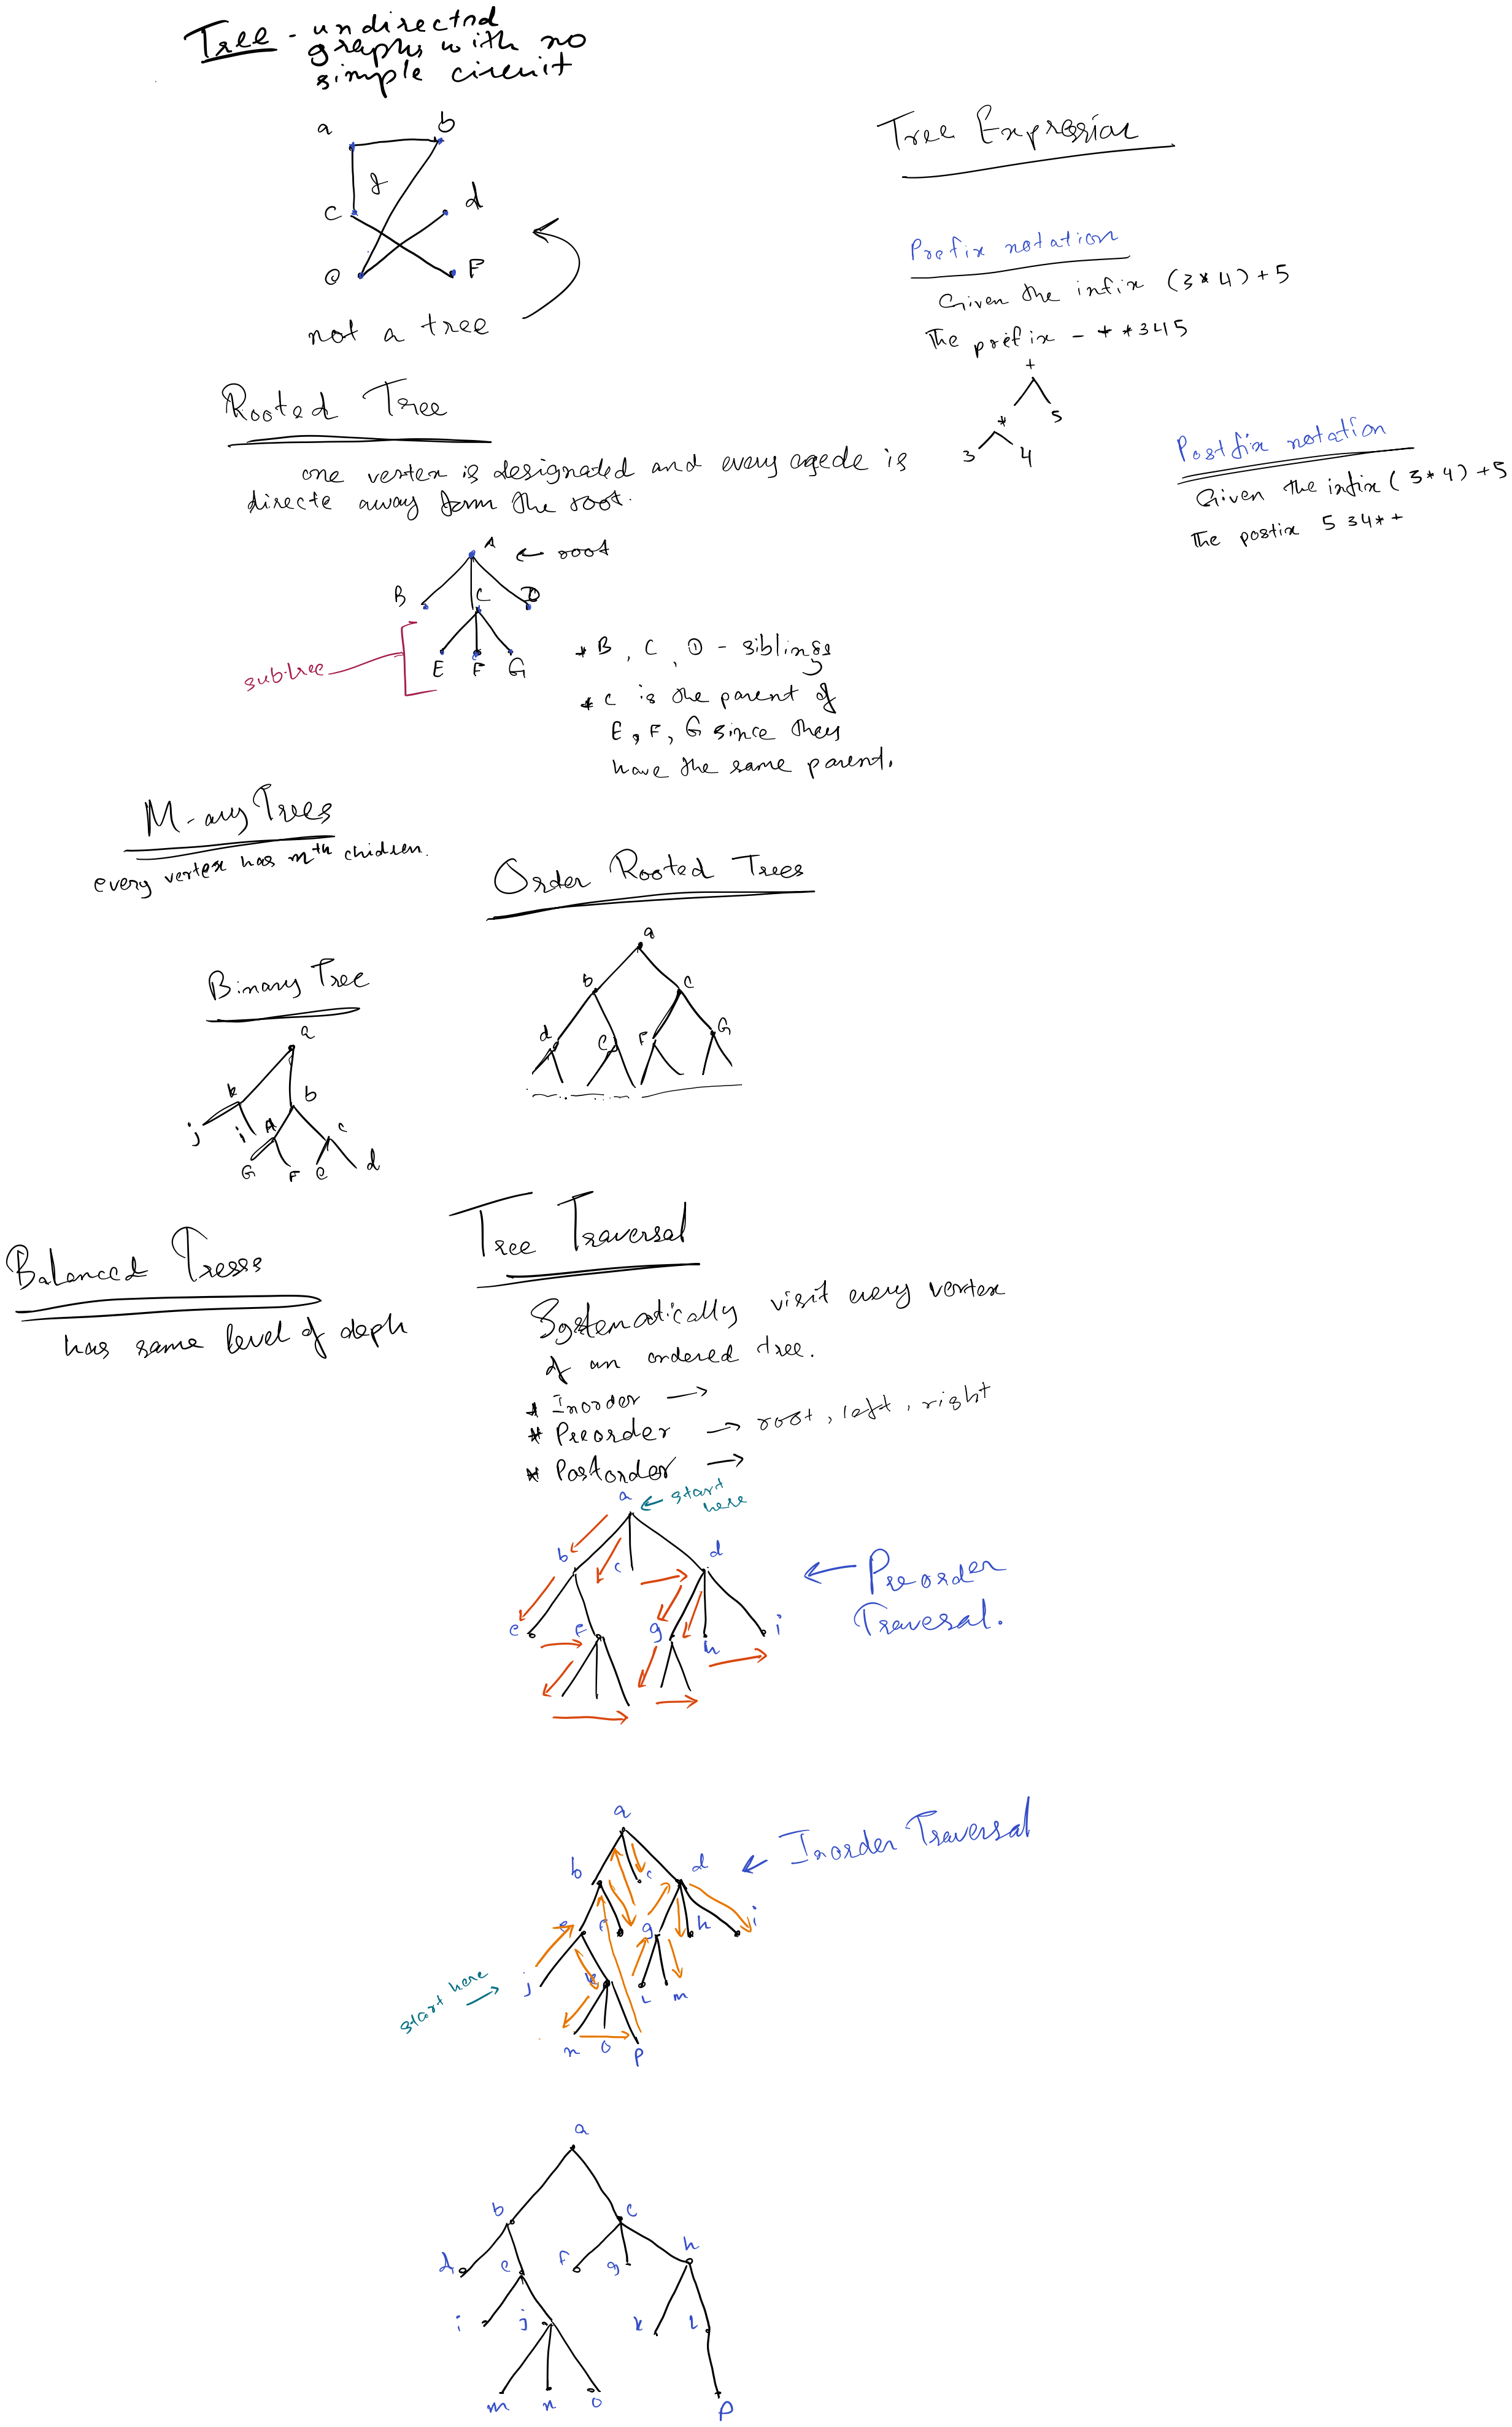 Tree - undirectnd
graphs with no
simple circuit
a b
c d
e F
not a tree
Rooted Tree
one vertex is designated and every egede is
directe away form the root.
A ← root
B C D
E F G
subtree
* B, C, D - siblings
* C is the parent of
E, F, G since they
have the same parent.
M-ary Trees
every vertex has mth chidren.
Order Rooted Trees
a
b c
d e F G
Binary Tree
a
k b
j i A c
G F e d
Balanced Tresss
has same level of deph
Tree Traversal
Systematically visit every vertex
of an ordered tree.
* Inorder →
* Preorder → root, left, right
* Postorder →
a ← start
here
b c d
e f g h i
← Preorder
Traversal.
a
← Inorder Traversal
b c d
e f g h i
start here →
j k l m
n o p
a
b c
d e f g h
i j k l
m n o p
Tree Expression
Prefix notation
Given the infix (3*4)+5
The prefix - + *345
+
* 5
3 4
Postfix notation
Given the infix (3*4)+5
The postix 5 34*+